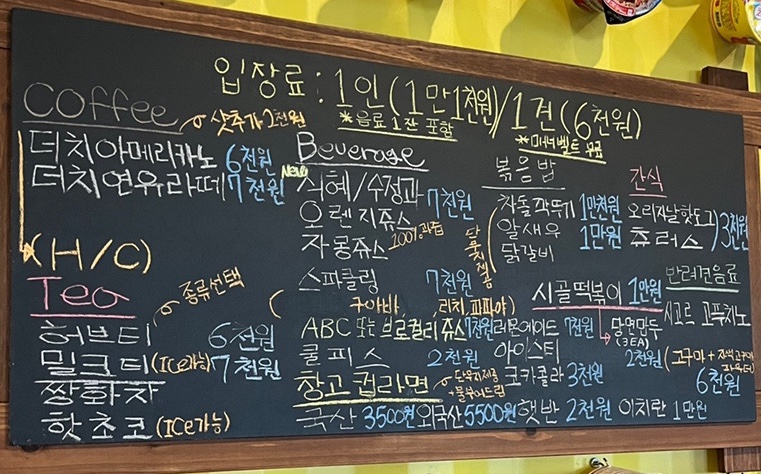 입장료 : 1인(1만1천원)/1견(6천원)
*음료 1잔 포함
*매너벨트 무료
Coffee
샷추가 1천원
더치아메리카노 6천원
더치연유라떼 7천원
(H/C)
Tea
종류선택
허브티 6천원
밀크티(ICE가능) 7천원
쌍화차
핫초코(ICE가능)
Beverage
New
식혜/수정과 7천원
오렌지쥬스
자몽쥬스 100%과즙
스파클링 7천원
(구아바, 리치, 파파야)
ABC 또는 브로컬리쥬스 7천원
쿨피스 2천원
레몬에이드 7천원
아이스티
코카콜라 3천원
창고컵라면
단무지제공
+물부어드림
국산 3500원 외국산 5500원 햇반 2천원 이치란 1만원
볶음밥
단무지제공
차돌깍뚜기 1만천원
알새우 1만원
닭갈비
시골떡볶이 1만원
당면만두 2천원
(3EA)
간식
오리지날핫도그 3천원
츄러스
반려견음료
시고르 고푸치노
6천원